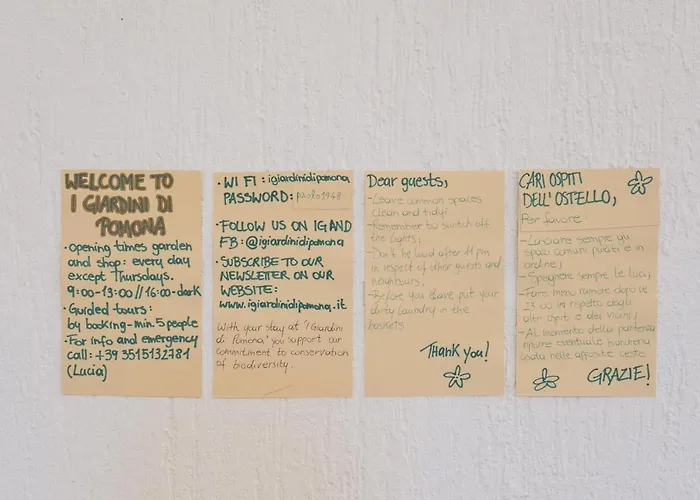 WELCOME TO
I GIARDINI DI
POMONA
· opening times garden
and shop: every day
except Thursdays.
9:00-13:00//16:00-dark
· Guided tours:
by booking-min.5people
· For info and emergency
call: +39 3515132781
(Lucia)
· WI FI: igiardinidipomona
PASSWORD: paolo1948
· FOLLOW US ON IG AND
FB: @igiardinidipomona
· SUBSCRIBE TO OUR
NEWSLETTER ON OUR
WEBSITE:
www.igiardinidipomona.it
With your stay at "I Giardini
di Pomona" you support our
commitment to conservation
of biodiversity.
Dear guests,
- Leave common spaces
clean and tidy;
- Remember to switch off
the lights;
- Don't be loud after 11 pm
in respect of other guests and
neighbours;
- Before you leave put your
dirty laundry in the
baskets
Thank you!
CARI OSPITI
DELL'OSTELLO,
Per favore:
- Lasciare sempre gli
spazi comuni puliti e in
ordine;
- Spegnere sempre le luci;
- Fare meno rumore dopo le
23 00 in rispetto degli
altri ospiti e dei vicini;
- Al momento della partenza
riporre eventuale biancheria
usata nelle apposite ceste
GRAZIE!